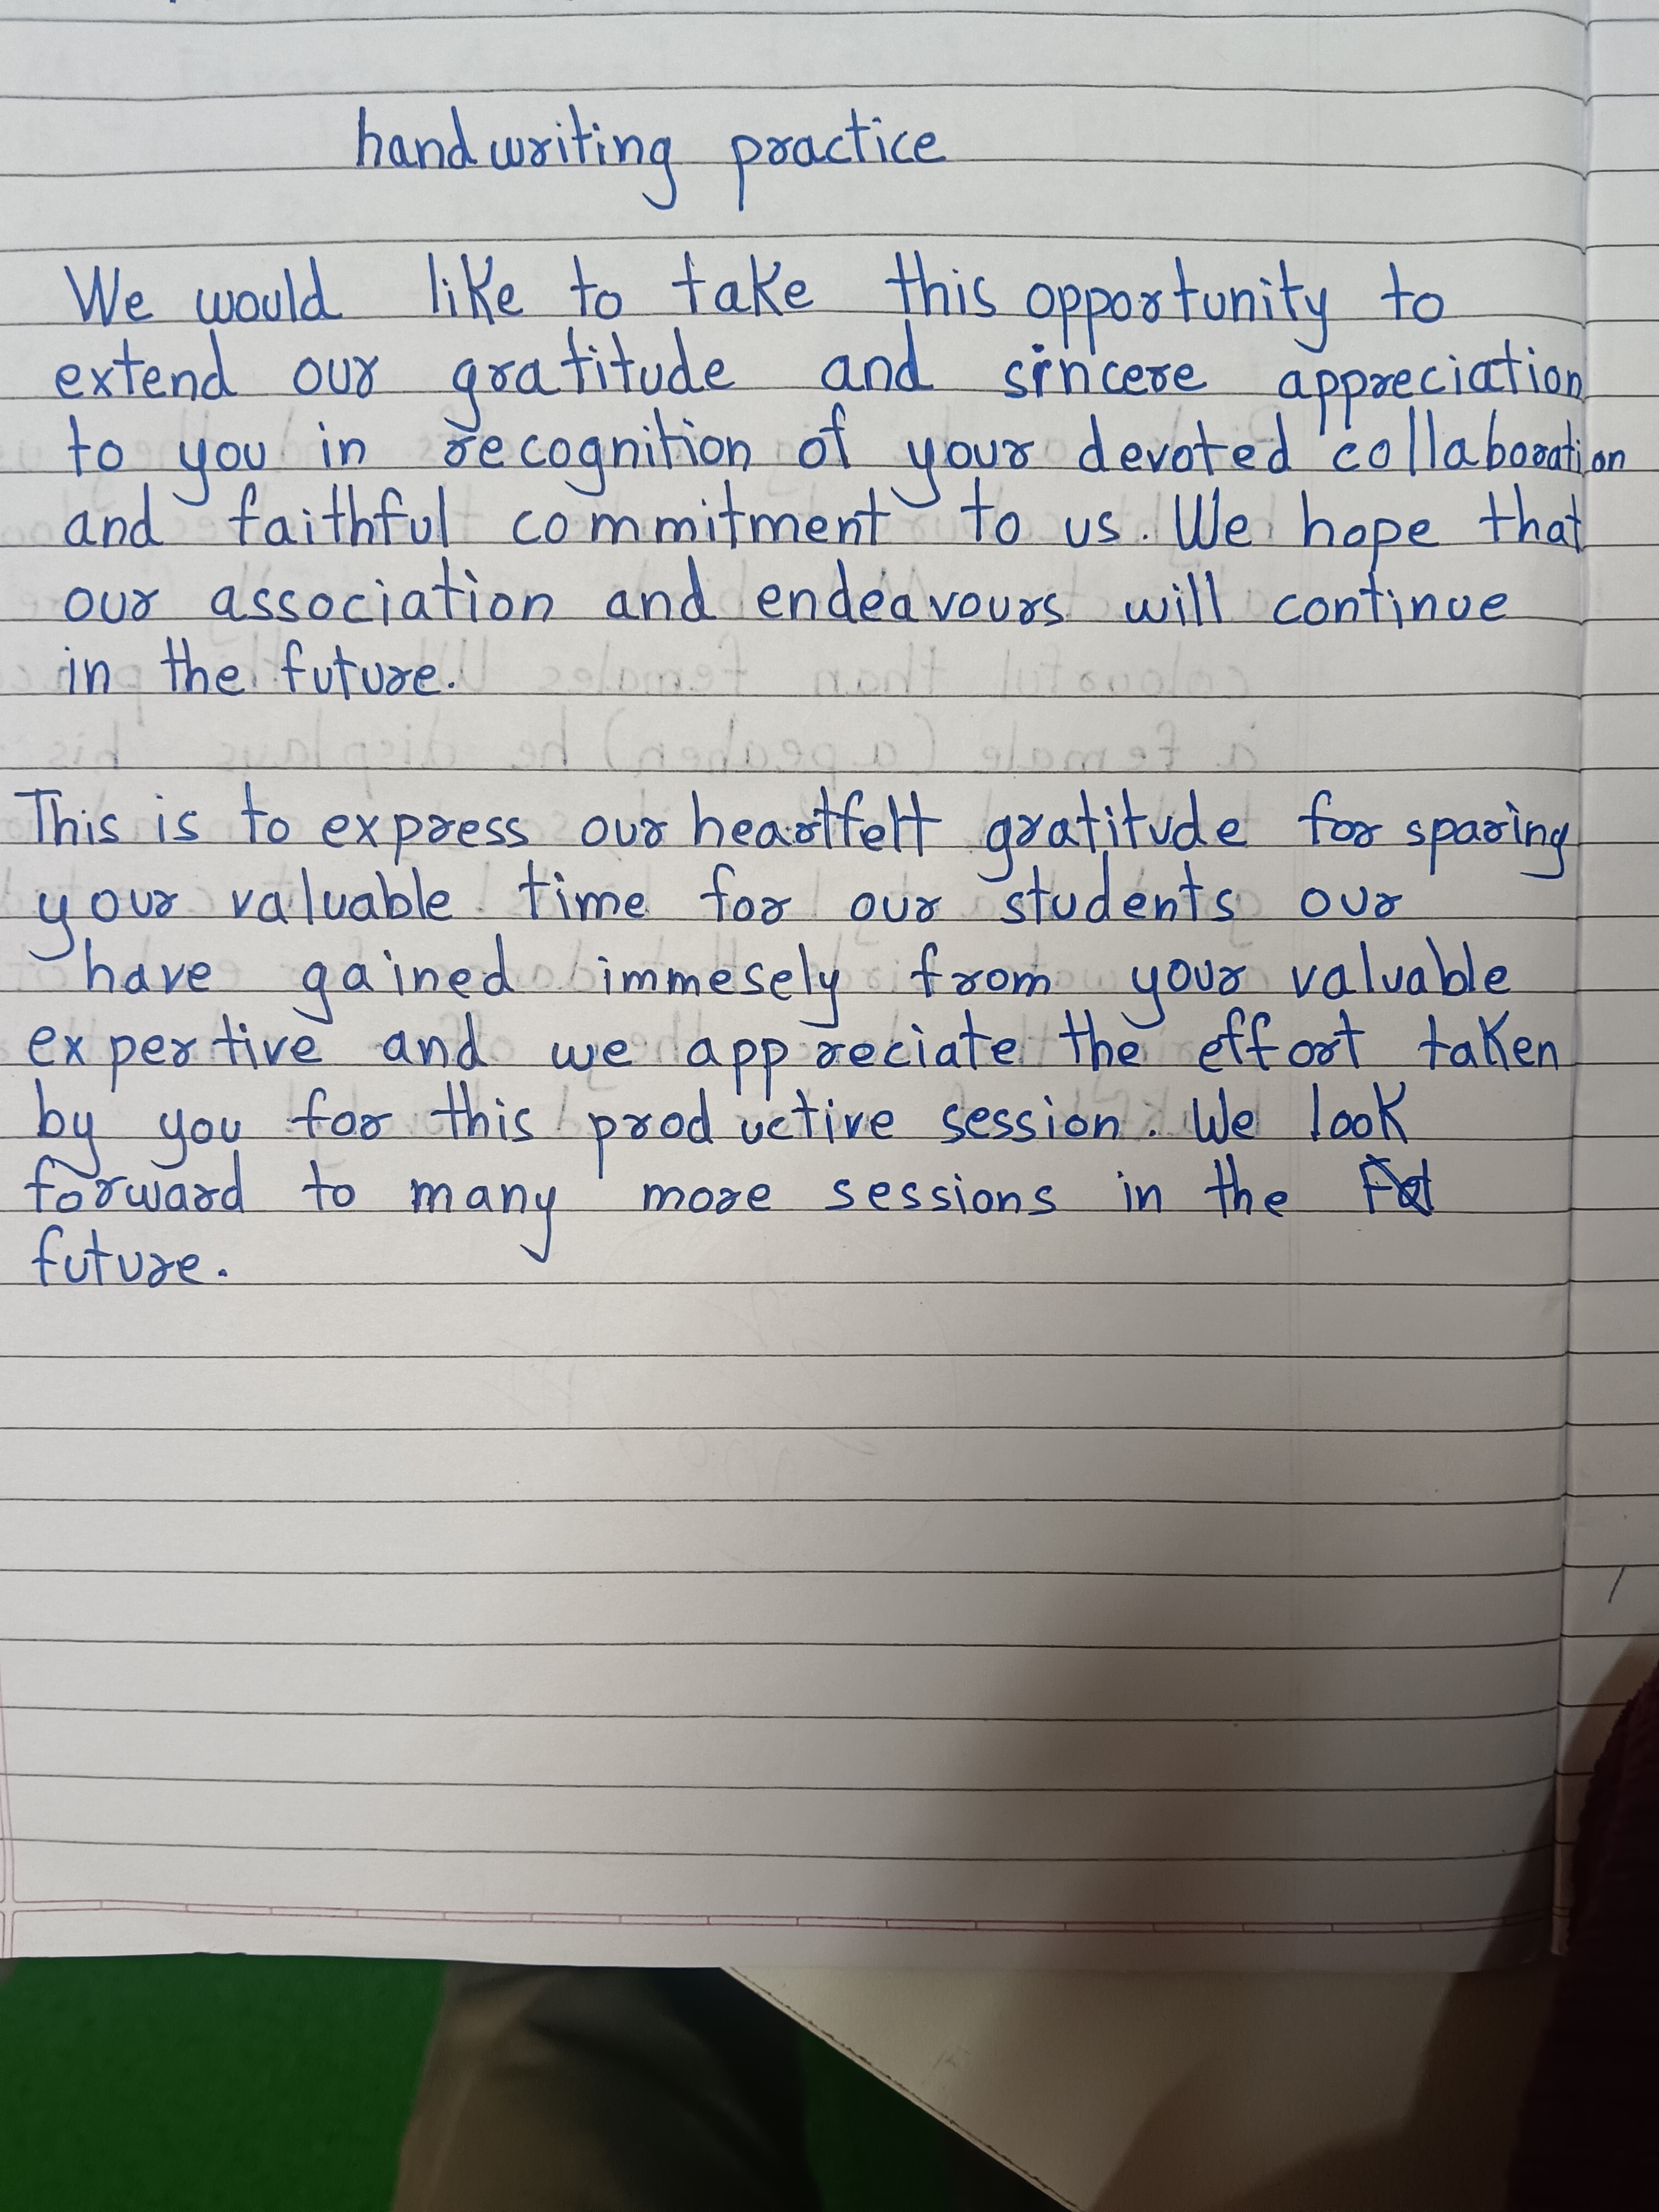 handwriting practice
We would like to take this opportunity to
extend our gratitude and sincere appreciation
to you in recognition of your devoted collaboration
and faithful commitment to us. We hope that
our association and endeavours will continue
in the future.
This is to express our heartfelt gratitude for sparing
your valuable time for our students our
have gained immesely from your valuable
expertive and we appreciate the effort taken
by you for this productive session. We look
forward to many more sessions in the
future.